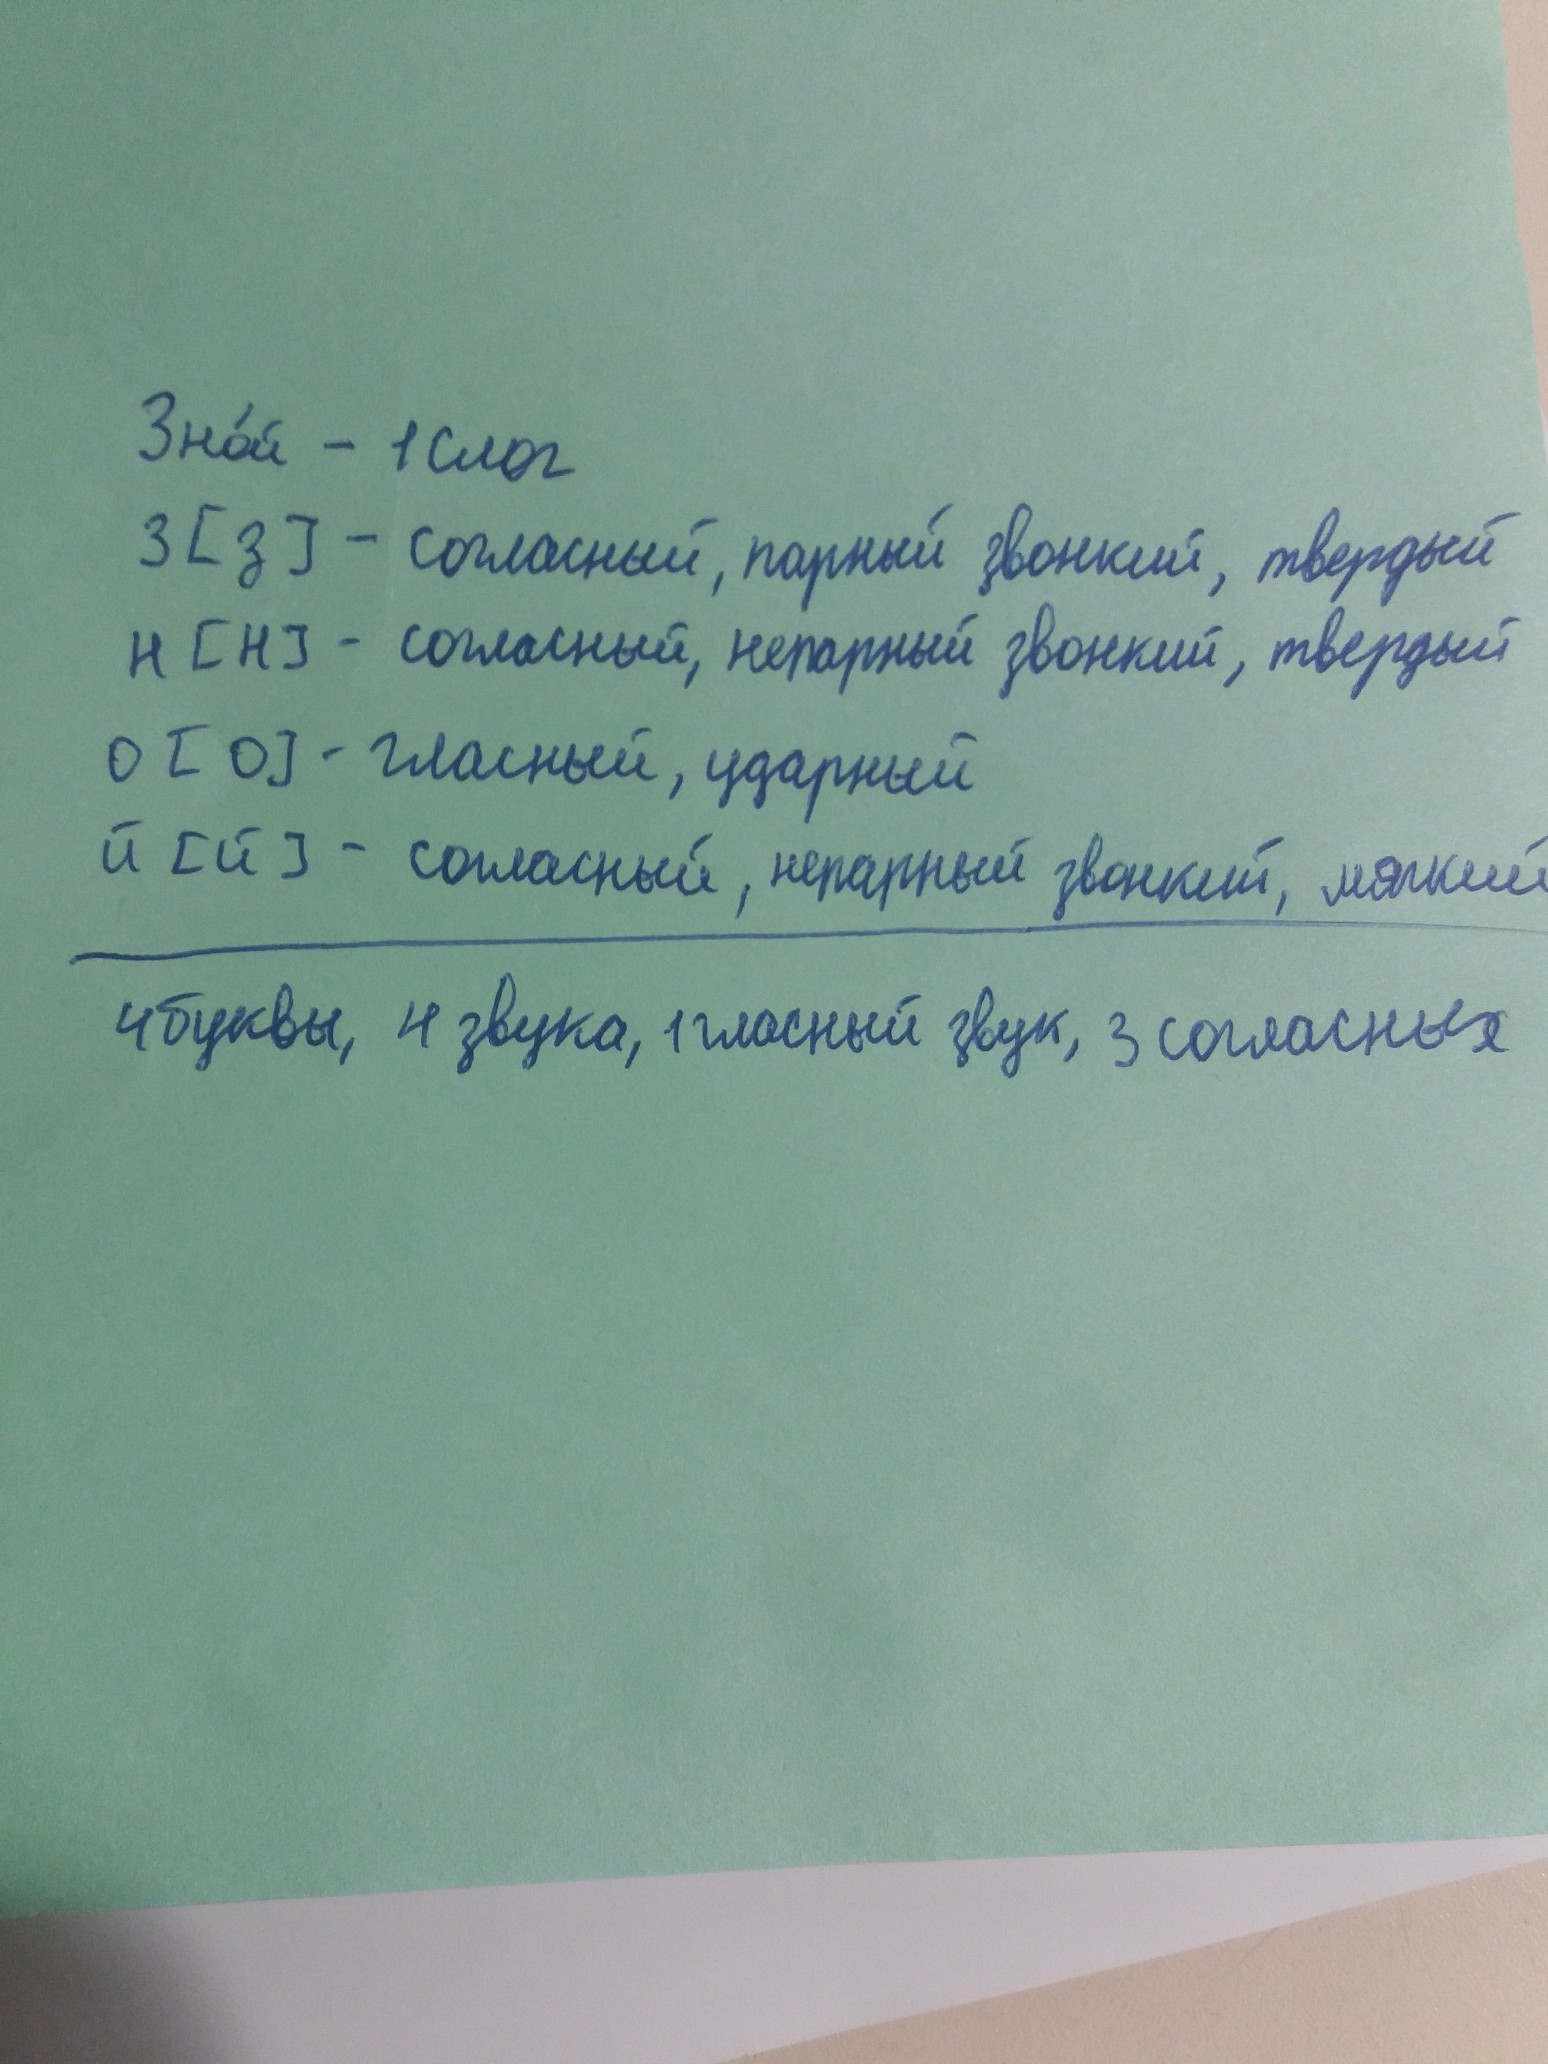 Зно́й - 1 слог
З [з] - согласный, парный звонкий, твердый
Н [н] - согласный, непарный звонкий, твердый
О [о] - гласный, ударный
Й [й] - согласный, непарный звонкий, мягкий
4 буквы, 4 звука, 1 гласный звук, 3 согласных